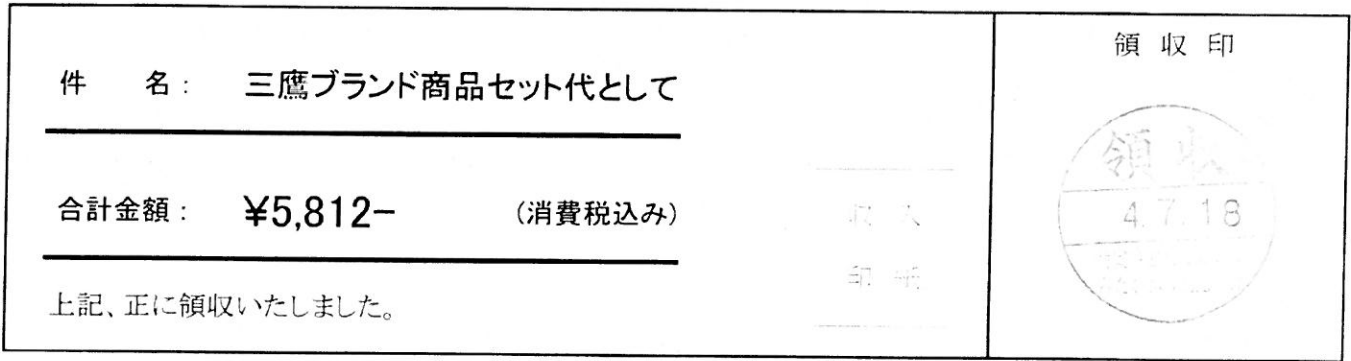 件　名： 三鷹ブランド商品セット代として
合計金額： ¥5,812− (消費税込み)
上記、正に領収いたしました。
収 入
印 紙
領 収 印
領 収
4.7.18